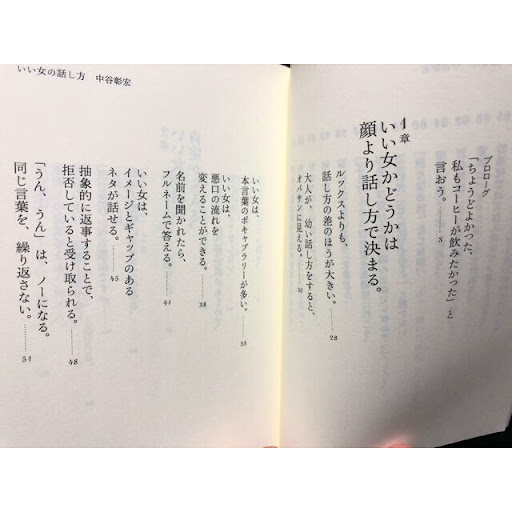 プロローグ
「ちょうどよかった、
私もコーヒーが飲みたかった」と
言おう。……3
1章
いい女かどうかは
顔より話し方で決まる。
ルックスよりも、
話し方の差のほうが大きい。……28
大人が、幼い話し方をすると、
オバサンに見える。……30
いい女の話し方 中谷彰宏
いい女は、
本言葉のボキャブラリーが多い。……35
いい女は、
悪口の流れを
変えることができる。……38
名前を聞かれたら、
フルネームで答える。……41
いい女は、
イメージとギャップのある
ネタが話せる。……45
抽象的に返事することで、
拒否していると受け取られる。……48
「うん、うん」は、ノーになる。
同じ言葉を、繰り返さない。……51